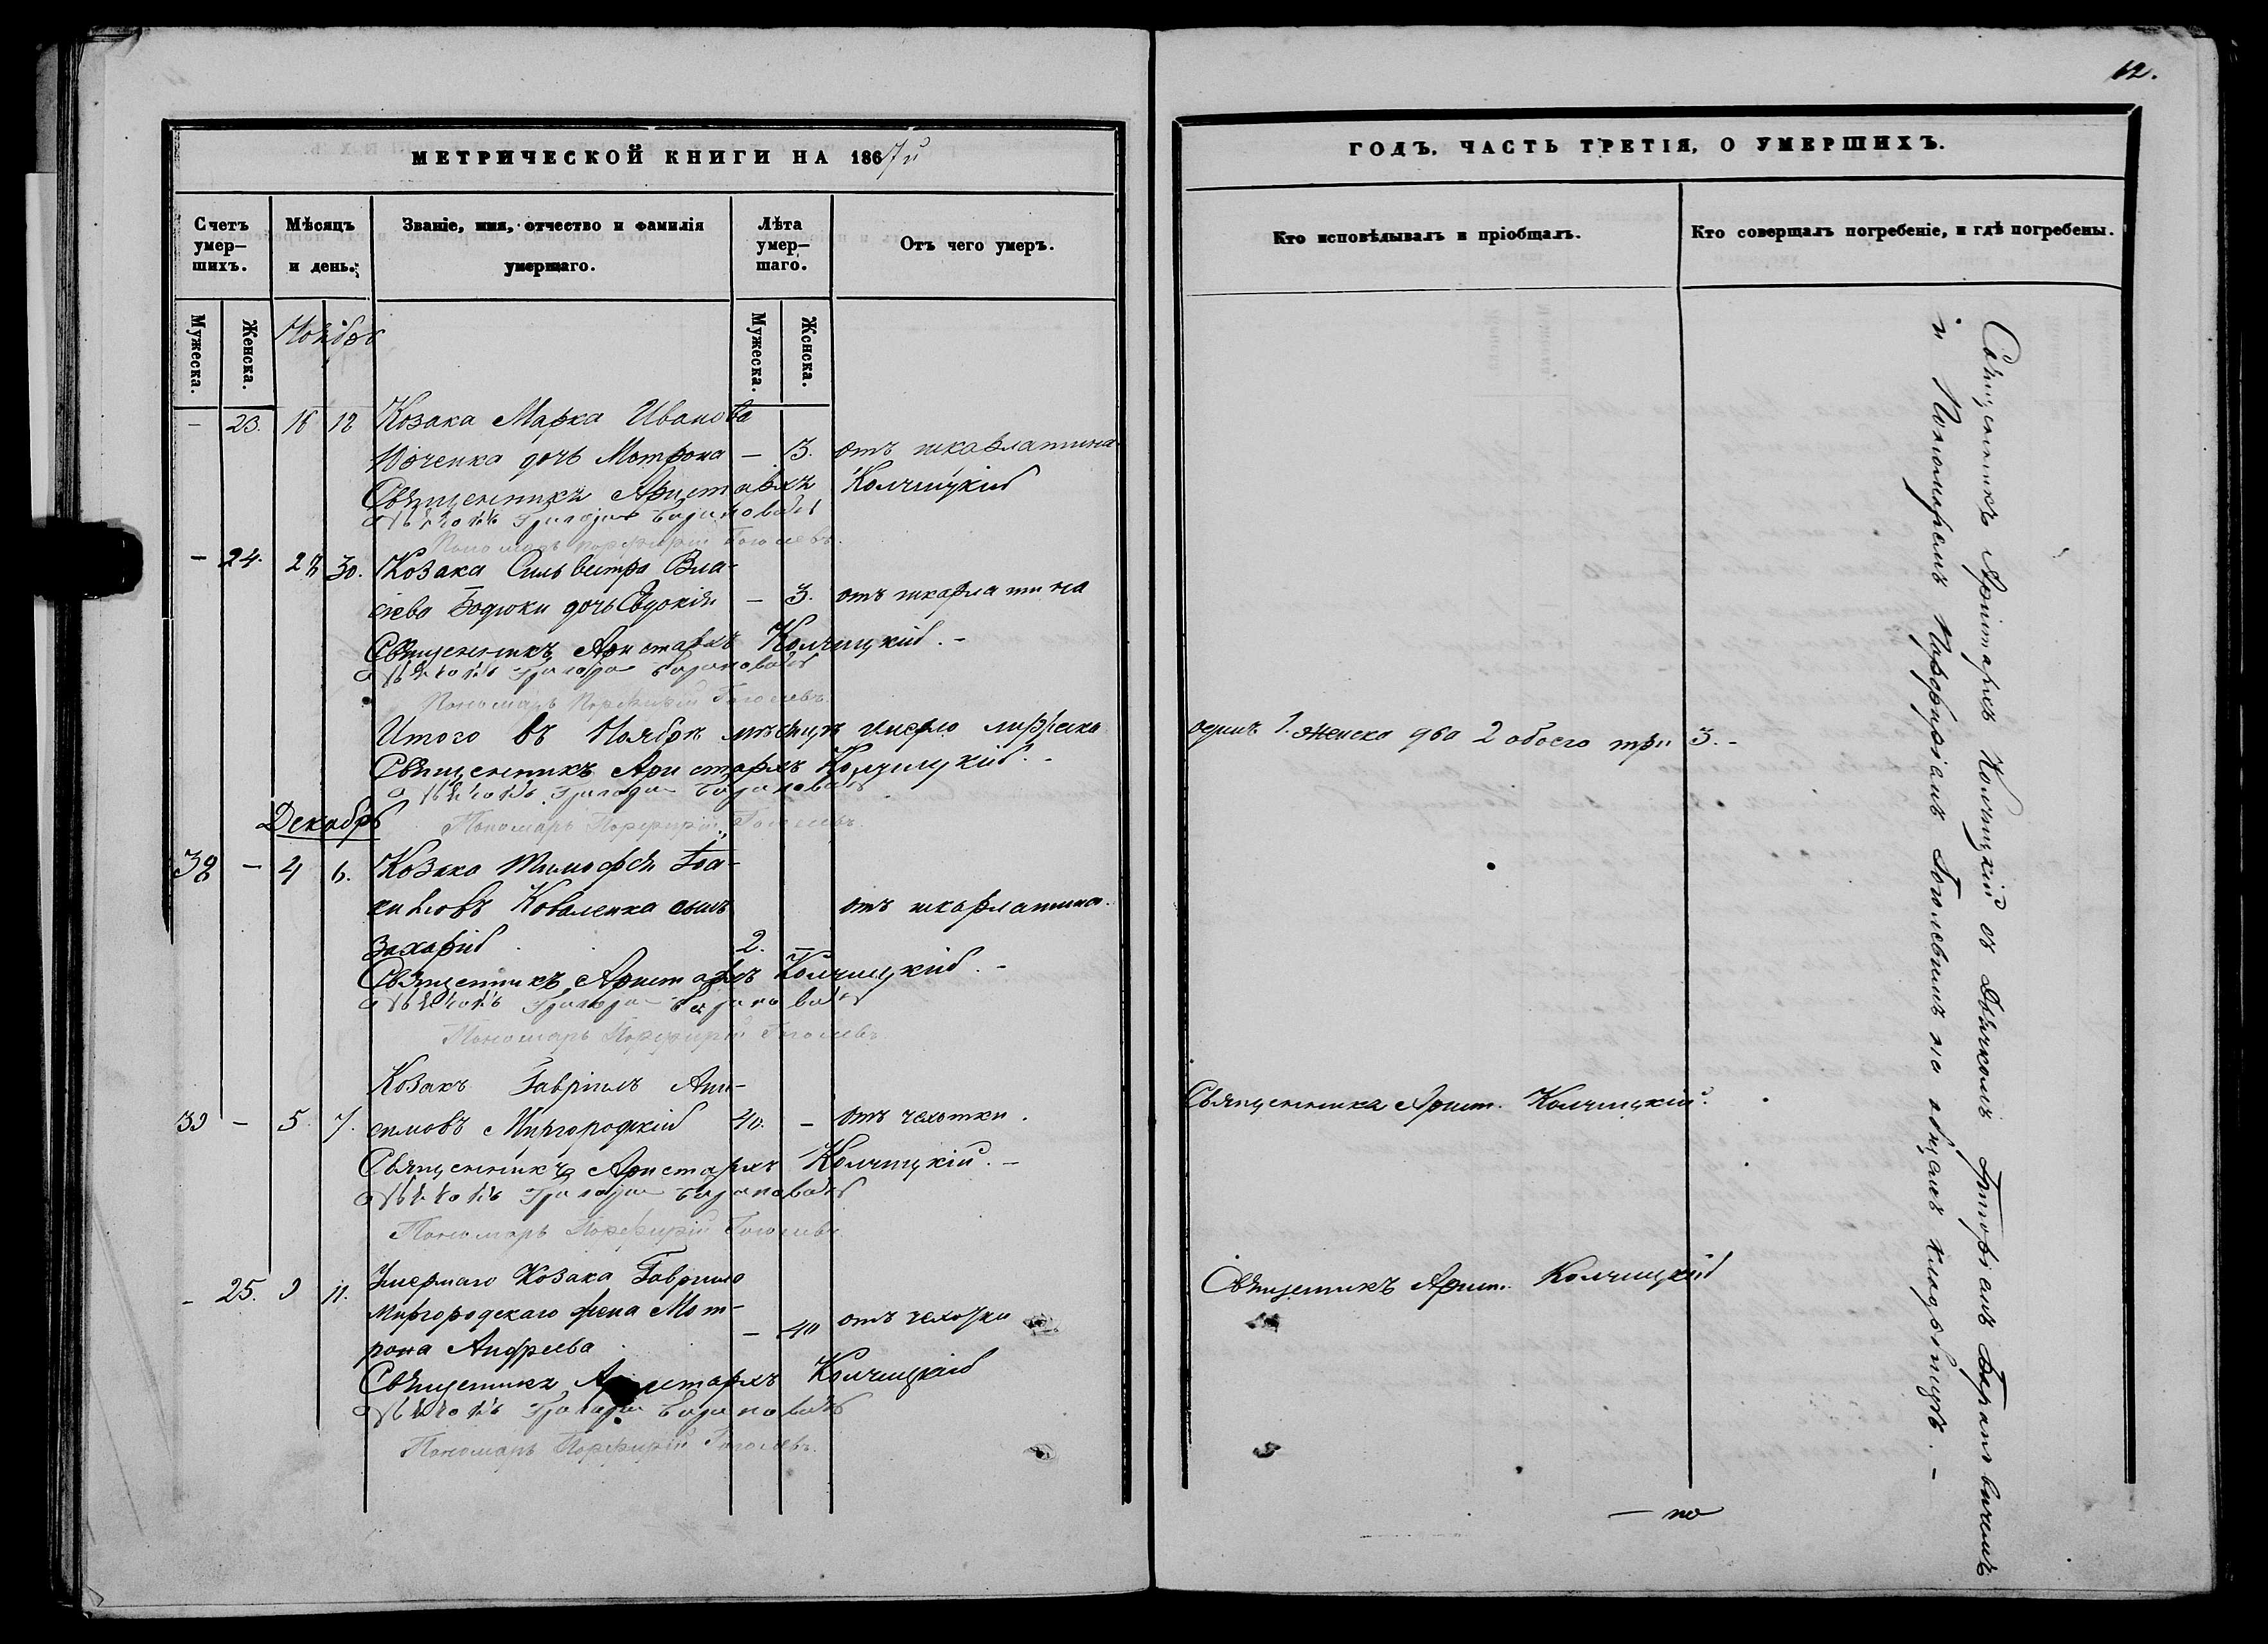 12.
МЕТРИЧЕСКОЙ КНИГИ НА 1867й
ГОДЪ. ЧАСТЬ ТРЕТІЯ, О УМЕРШИХЪ.
Счетъ умер–шихъ.
Мѣсяцъ и день.
Званіе, имя, отчество и фамилія умершаго.
Лѣта умер–шаго.
Отъ чего умеръ.
Кто исповѣдывалъ и пріобщалъ.
Кто совершалъ погребеніе, и гдѣ погребены.
Мужеска.
Женска.
Мужеска.
Женска.
Ноябрь
– 23. 16 18 Козака Марка Иванова
дочь Мотрона – 3. отъ шкарлатина
Священникъ Аристархъ Колчицкій
Дьячокъ Григорій
Пономарь Порфирій Гоголевъ.
– 24. 28 30. Козака Сильвестра Вла-
сіева Бодюки дочь Евдокія – 3. отъ шкарлатина
Священникъ Аристархъ Колчицкій. –
Дьячокъ Григорій
Пономарь Порфирій Гоголевъ
Итого въ Ноябрѣ мѣсяцѣ умерло мужеска одинъ 1. женска два 2 обоего три 3. –
Священникъ Аристархъ Колчицкій. –
Дьячокъ Григорій
Пономарь Порфирій Гоголевъ
Декабрь
38 – 4 6. Козака Тимофея Іоа-
Коваленка сынъ отъ шкарлатина.
Захарій 2. –
Священникъ Аристархъ Колчицкій. –
Дьячокъ Григорій
Пономарь Порфирій Гоголевъ
Козакъ Гавріилъ Ани-
39 – 5. 7. симовъ Миргородскій 40. – отъ чахотки. Священникъ Арист. Колчицкій.
Священникъ Аристархъ Колчицкій. –
Дьячокъ Григорій
Пономарь Порфирій Гоголевъ
– 25. 9 11. Умершаго Козака Гавріила Священникъ Арист. Колчицкій
Миргородскаго жена Мот-
рона Андреева – 40 отъ чахотки
Священникъ Аристархъ Колчицкій
Дьячокъ Григорій
Пономарь Порфирій Гоголевъ.
Священникъ Аристархъ Колчицкій съ Дьячкомъ Григоріемъ
и Пономаремъ Порфиріемъ Гоголевымъ на общемъ кладбищѣ. –
– по